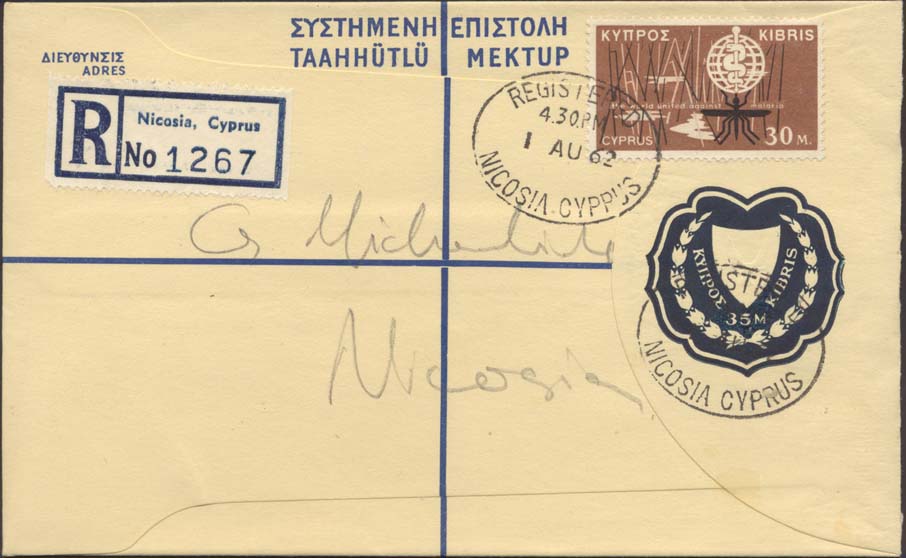 ΣΥΣΤΗΜΕΝΗ ΕΠΙΣΤΟΛΗ
TAAHHÜTLÜ MEKTUP
ΔΙΕΥΘΥΝΣΙΣ
ADRES
R
Nicosia, Cyprus
No 1267
ΚΥΠΡΟΣ KIBRIS
the world united against malaria
CYPRUS 30 M.
REGISTERED
4.30.PM
1 AU 62
NICOSIA CYPRUS
G
Nicosia
ΚΥΠΡΟΣ KIBRIS
35M
NICOSIA CYPRUS